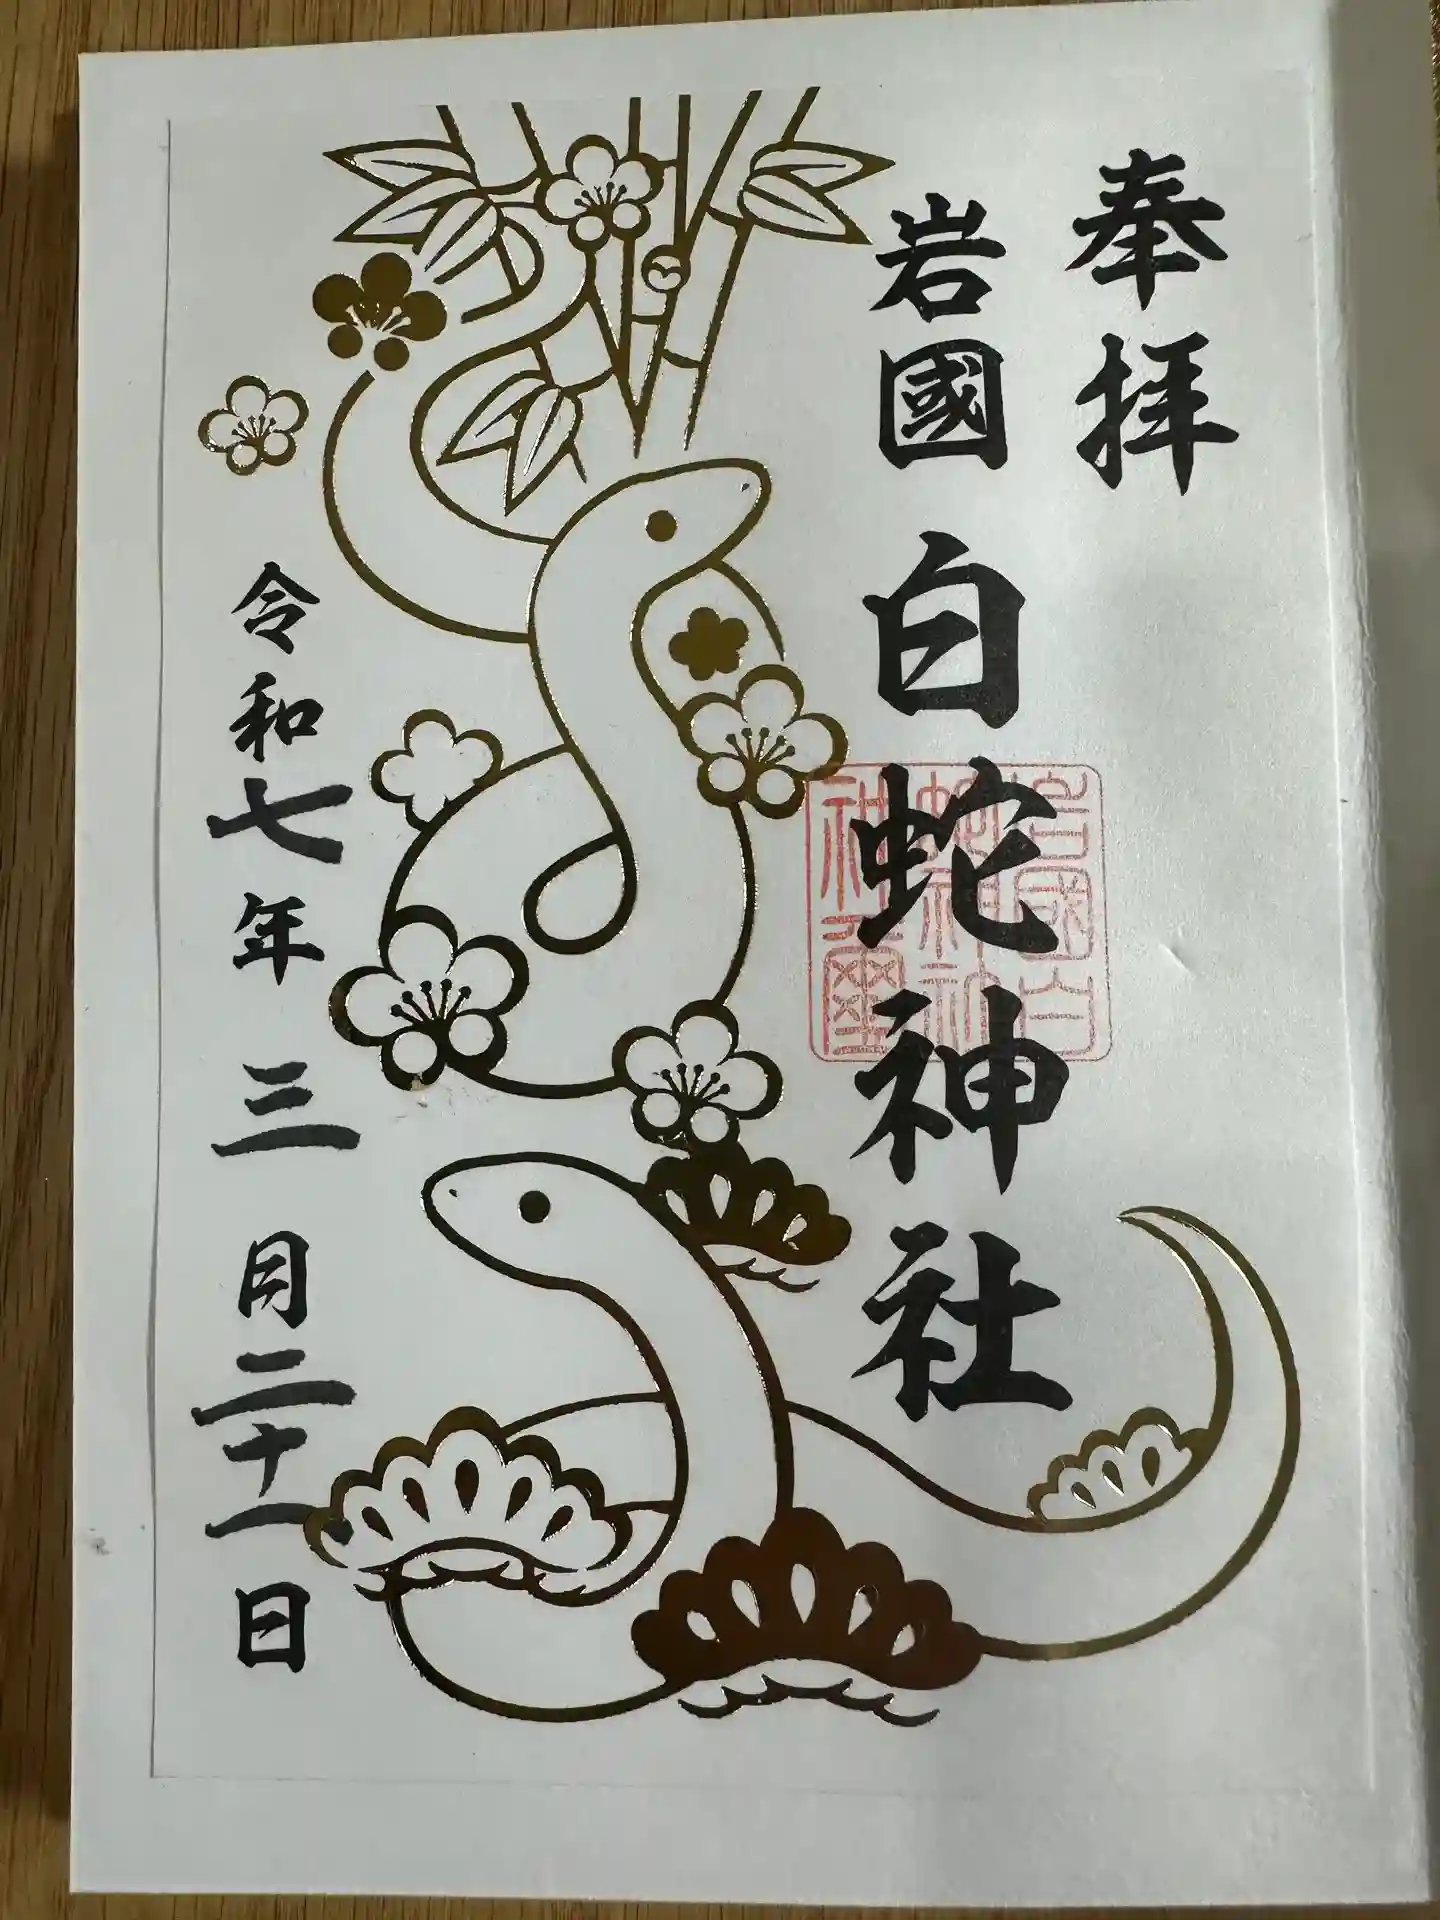 奉拝
岩國白蛇神社
岩國白
蛇神社
神社璽
令和七年三月二十一日